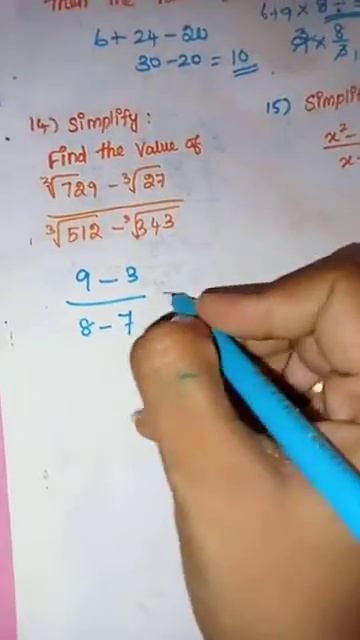 6 + 24 - 20
30 - 20 = 10
14) Simplify:
Find the value of
∛729 - ∛27
∛512 - ∛343
9 - 3
8 - 7
15) Simplify
x² -
x -